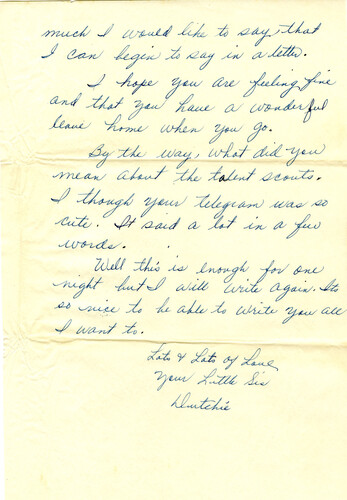 much I would like to say, that
I can begin to say in a letter.
I hope you are feeling fine
and that you have a wonderful
leave home when you go.
By the way, what did you
mean about the talent scouts.
I though your telegram was so
cute. It said a lot in a few
words.
Well this is enough for one
night but I will write again. Its
so nice to be able to write you all
I want to.
Lots & Lots of Love
Your Little Sis
Dutchie